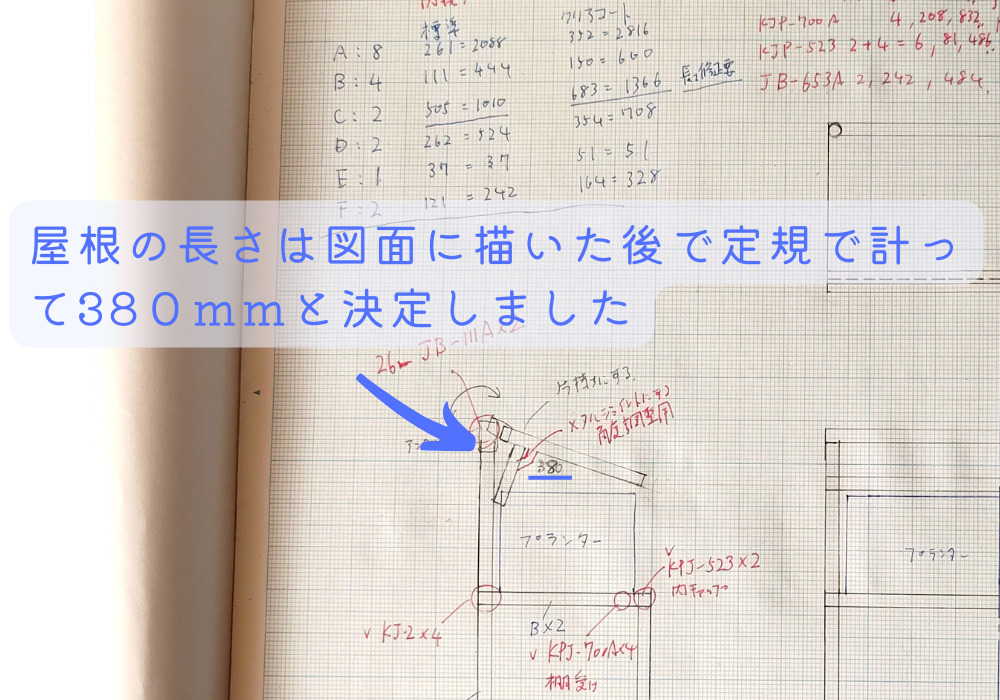 標準
クリアコート
A : 8
261 = 2088
352 = 2816
B : 4
111 = 444
150 = 600
C : 2
505 = 1010
683 = 1366
長さ修正要
D : 2
262 = 524
354 = 708
E : 1
37 = 37
51 = 51
F : 2
121 = 242
164 = 328
KJP-700A 4,208,832,
KJP-523 2+4=6, 81,486.
JB-653A 2,242,484,
屋根の長さは図面に描いた後で定規で計っ
て380mmと決定しました
26mm JB-111A×2
片持ちにする
メタルジョイントにする
角度調整用
380
プランター
プランター
∨ KPJ-523×2
内キャップ
∨ KJ-2×4
B×2
∨ KPJ-700A×4
棚受け